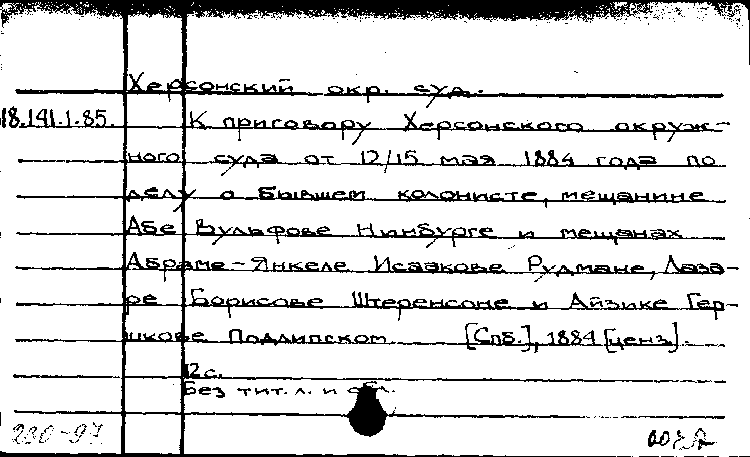 Херсонский окр. суд.
18.141.1.85. К приговору Херсонского окруж-
ного суда от 12/15 мая 1884 года по
делу о бывшем колонисте, мещанине
Абе Вульфове Нинбурге и мещанах
Абраме-Янкеле Исаакове Рудмане, Лаза-
ре Борисове Штеренсоне и Айзике Гер-
шкове Подлипском [Спб.], 1884 [ценз].
12 с.
Без тит. л. и обл.
230-97